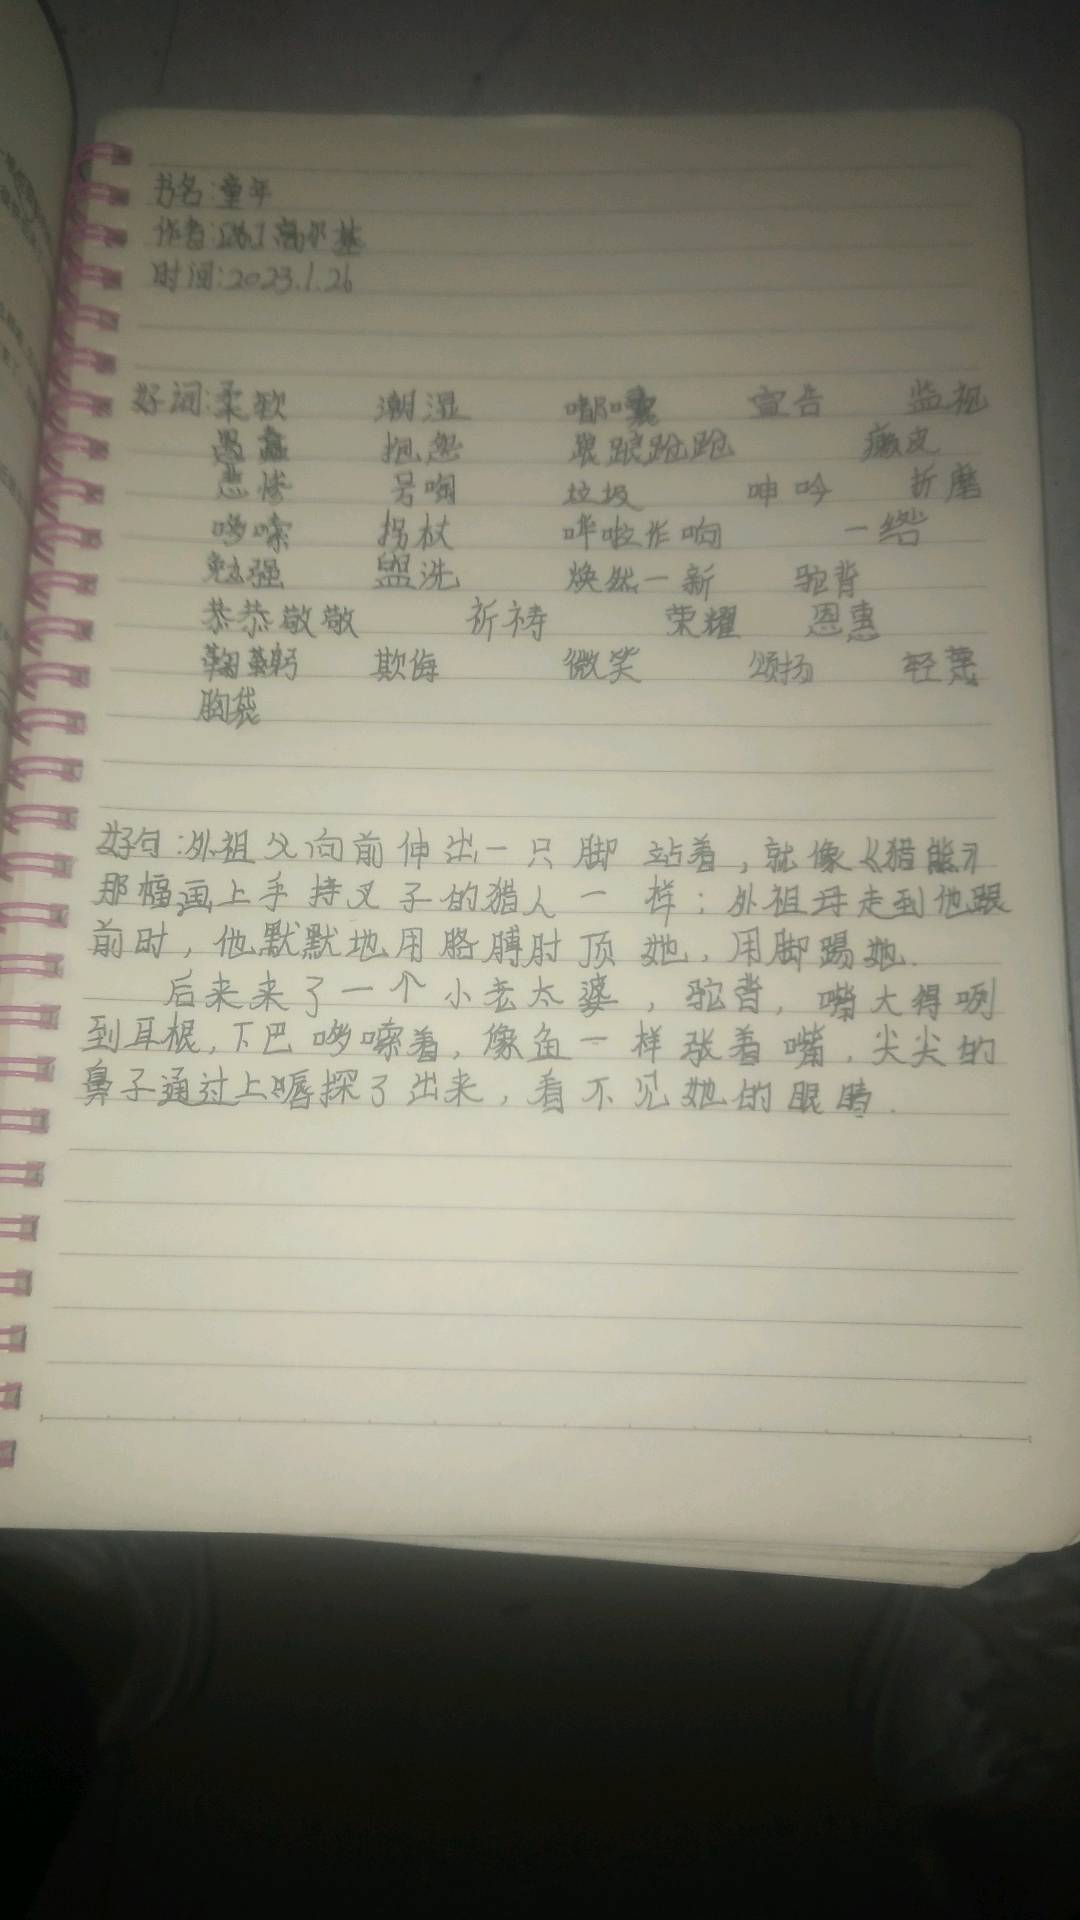 书名:童年
作者:[苏]高尔基
时间:2023.1.26
好词:柔软 潮湿 嘟囔 宣告 监视
愚蠢 抱怨 踉踉跄跄 癞皮
悲惨 号啕 垃圾 呻吟 折磨
哆嗦 拐杖 哗啦作响 一绺
勉强 盥洗 焕然一新 驼背
恭恭敬敬 祈祷 荣耀 恩惠
鞠躬 欺侮 微笑 颂扬 轻蔑
胸袋
好句:外祖父向前伸出一只脚站着,就像《猎熊》
那幅画上手持叉子的猎人一样;外祖母走到他跟
前时,他默默地用胳膊肘顶她,用脚踢她.
后来来了一个小老太婆,驼背,嘴大得咧
到耳根,下巴哆嗦着,像鱼一样张着嘴,尖尖的
鼻子通过上唇探了出来,看不见她的眼睛.